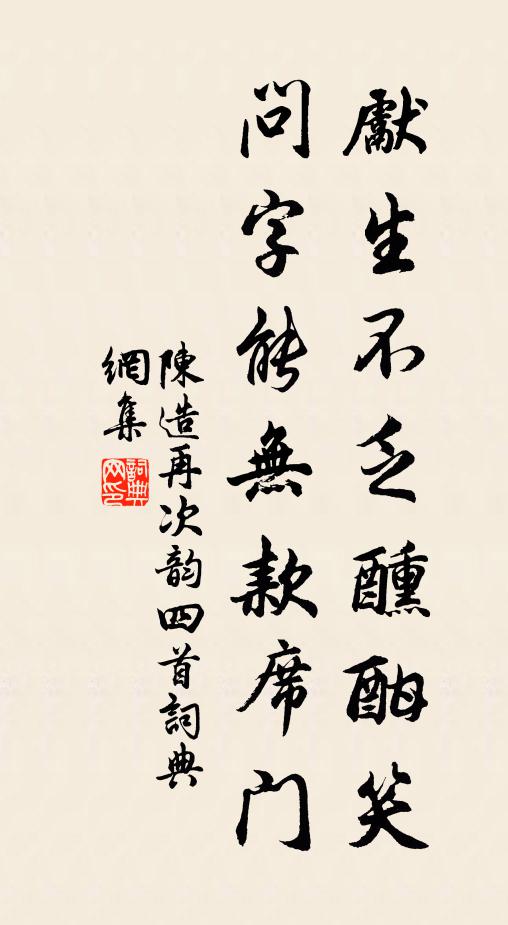 獻生不乏醺酣笑
問字能無款席門
陳造再次韵四首詞典
網集
詞典網印